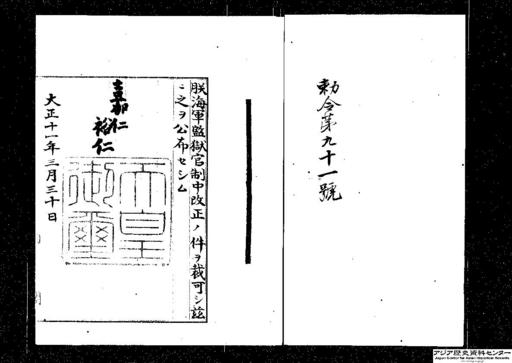 勅令第九十一號
朕海軍監獄官制中改正ノ件ヲ裁可シ玆
ニ之ヲ公布セシム
嘉仁
裕仁
天皇
御璽
大正十一年三月三十日
アジア歴史資料センター
Japan Center for Asian Historical Records